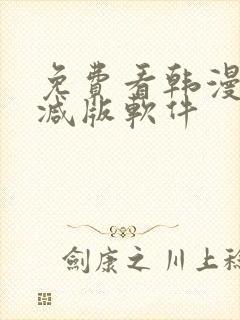 免費看韩漫
減版軟件
劍康之 川上稔